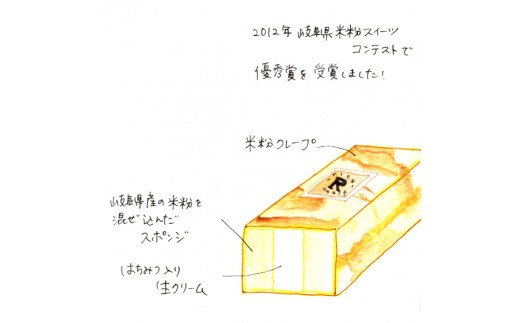 2012年 岐阜県米粉スイーツ
コンテストで
優秀賞を受賞しました!
米粉クレープ
R
岐阜県産の米粉を
混ぜ込んだ
スポンジ
はちみつ入り
生クリーム